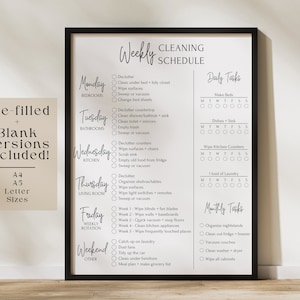 Weekly CLEANING
SCHEDULE
Monday
BEDROOMS
Declutter
Clean under bed + tidy street
Wipe surfaces
Sweep or vacuum
Change bed sheets
Tuesday
BATHROOMS
Declutter countertops
Clean shower/bathtub + sink
Clean toilet + mirrors
Empty trash
Sweep or vacuum
Wednesday
KITCHEN
Declutter counters
Wipe surfaces + chairs
Scrub sink
Empty old food from fridge
Sweep or vacuum
Thursday
LIVING ROOM
Declutter
Organize shelves/tables
Wipe surfaces
Wipe light switches + remotes
Sweep or vacuum
Friday
WEEKLY
ROTATION
Week 1 - Wipe blinds + fan blades
Week 2 - Wipe walls + baseboards
Week 3 - Quick vacuum + mop floors
Week 4 - Clean kitchen appliances
Week 5 - Wipe frequently touched places
Weekend
OTHER
Catch up on laundry
Dust fans
Tidy up the car
Clean under furniture
Meal plan + make grocery list
Daily Tasks
Make Beds
M T W T F S S
Dishes + Sink
M T W T F S S
Wipe Kitchen Counters
M T W T F S S
Load of Laundry
M T W T F S S
Monthly Tasks
Organize nightstands
Clean out fridge + freezer
Vacuum couches
Clean washer + dryer
Wipe all cabinets
e-filled
+
Blank
ersions
cluded!
A4
A5
Letter
Sizes